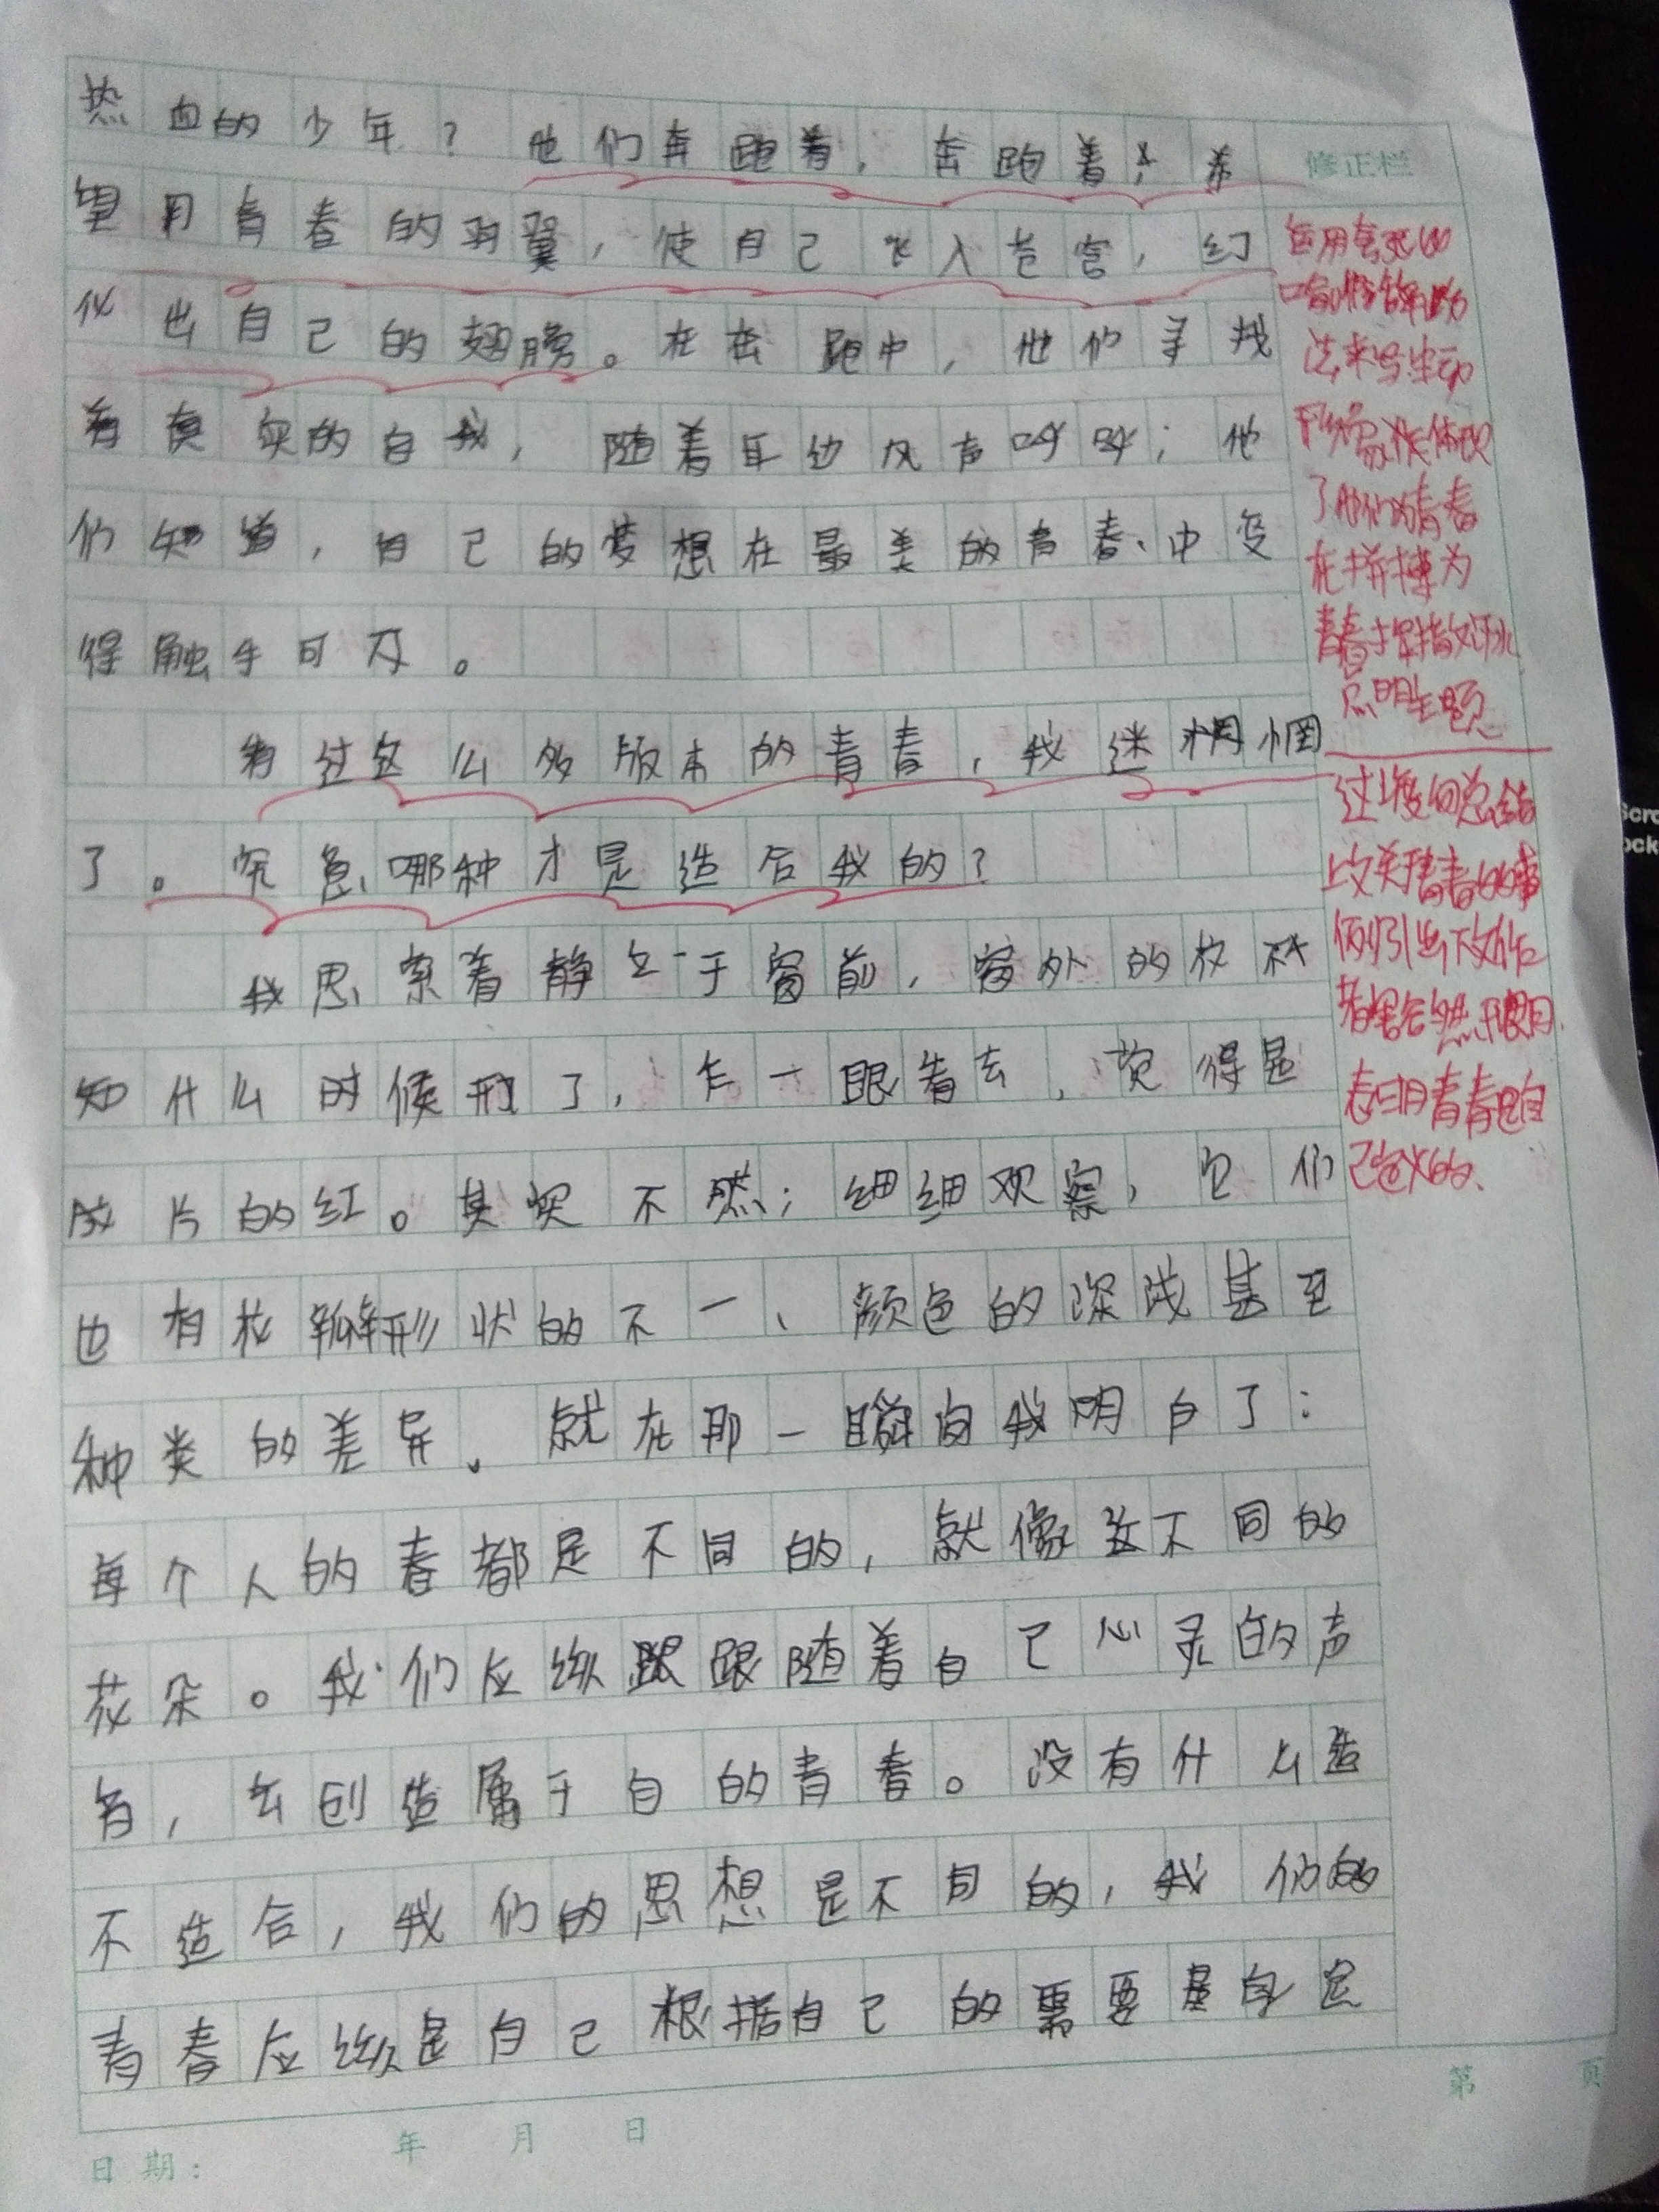 热血的少年？他们奔跑着，奔跑着，希
望用青春的羽翼，使自己飞入苍穹，幻
化出自己的翅膀。在奔跑中，他们寻找
着真实的自我，随着耳边风声呼呼；他
们知道，自己的梦想在最美的青春中变
得触手可及。
看过这么多版本的青春，我迷惘
了。究竟哪种才是适合我的？
我思索着静立于窗前，窗外的花不
知什么时候开了，乍一眼看去，觉得是
成片的红。其实不然；细细观察，它们
也有花瓣形状的不一、颜色的深浅甚至
种类的差异。就在那一瞬间我明白了：
每个人的春都是不同的，就像这不同的
花朵。我们应该跟随着自己心灵的声
音，去创造属于自的青春。没有什么适
不适合，我们的思想是不同的，我们的
青春应该是自己根据自己的需要量身定
修正栏
运用
法来写生动
形象体现
了他们为青春
在拼搏为
青春挥指汗水
点明主题
过度句总结
上文关于青春的事
例引出下文作
者
表明青春是自
己定义的。
日期： 年 月 日
第 页